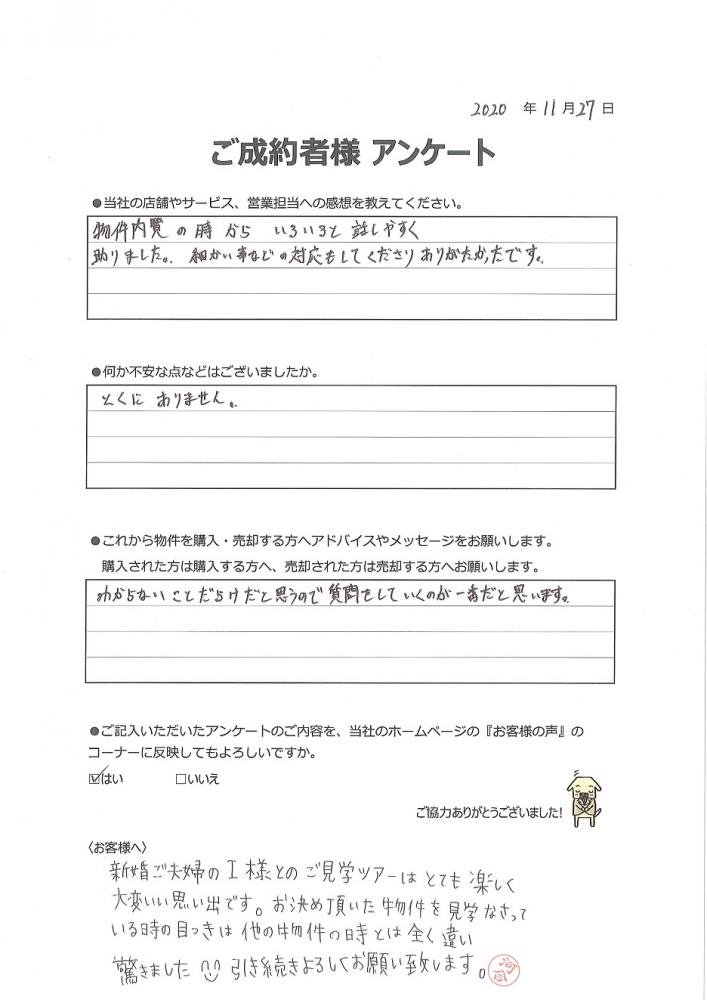 2020 年 11月27日
ご成約者様 アンケート
●当社の店舗やサービス、営業担当への感想を教えてください。
物件内覧の時から いろいろと 話しやすく
助りました。 細かい事などの対応もしてくださりありがたかったです。
●何か不安な点などはございましたか。
とくに ありません。
●これから物件を購入・売却する方へアドバイスやメッセージをお願いします。
購入された方は購入する方へ、売却された方は売却する方へお願いします。
わからないことだらけだと思うので質問をしていくのが一番だと思います。
●ご記入いただいたアンケートのご内容を、当社のホームページの『お客様の声』の
コーナーに反映してもよろしいですか。
☑はい □いいえ
ご協力ありがとうございました!
〈お客様へ〉
新婚ご夫婦のI様とのご見学ツアーはとても楽しく
大変いい思い出です。お決め頂いた物件を見学なさって
いる時の目つきは他の物件の時とは全く違い
驚きました 引き続きよろしくお願い致します。